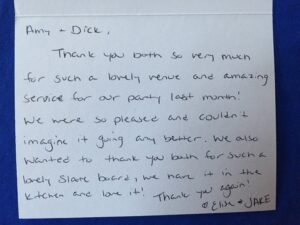 Amy + Dick,
Thank you both so very much
for such a lovely venue and amazing
service for our party last month!
We were so pleased and couldn't
imagine it going any better. We also
wanted to thank you both for such a
lovely slate board, we have it in the
kitchen and love it! Thank you again!
♡ Elise + JAKE